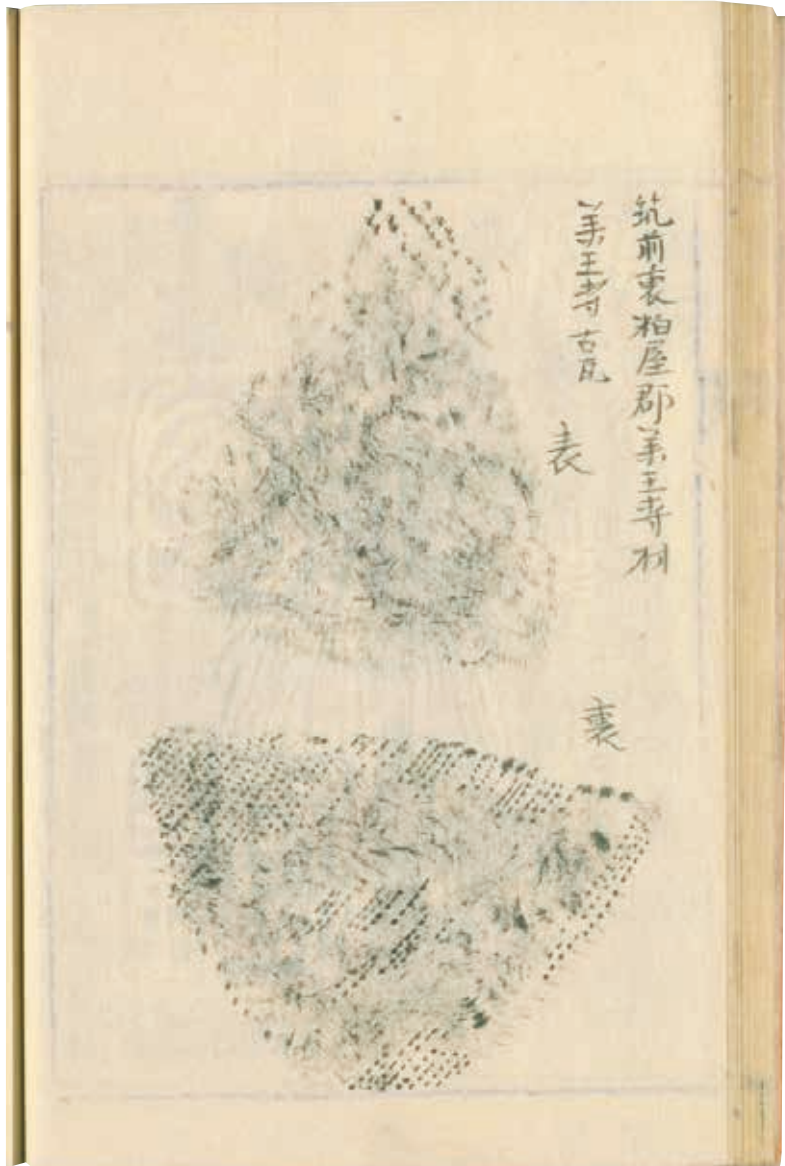 筑前裏粕屋郡美王寺村
美王寺古瓦
表
裏